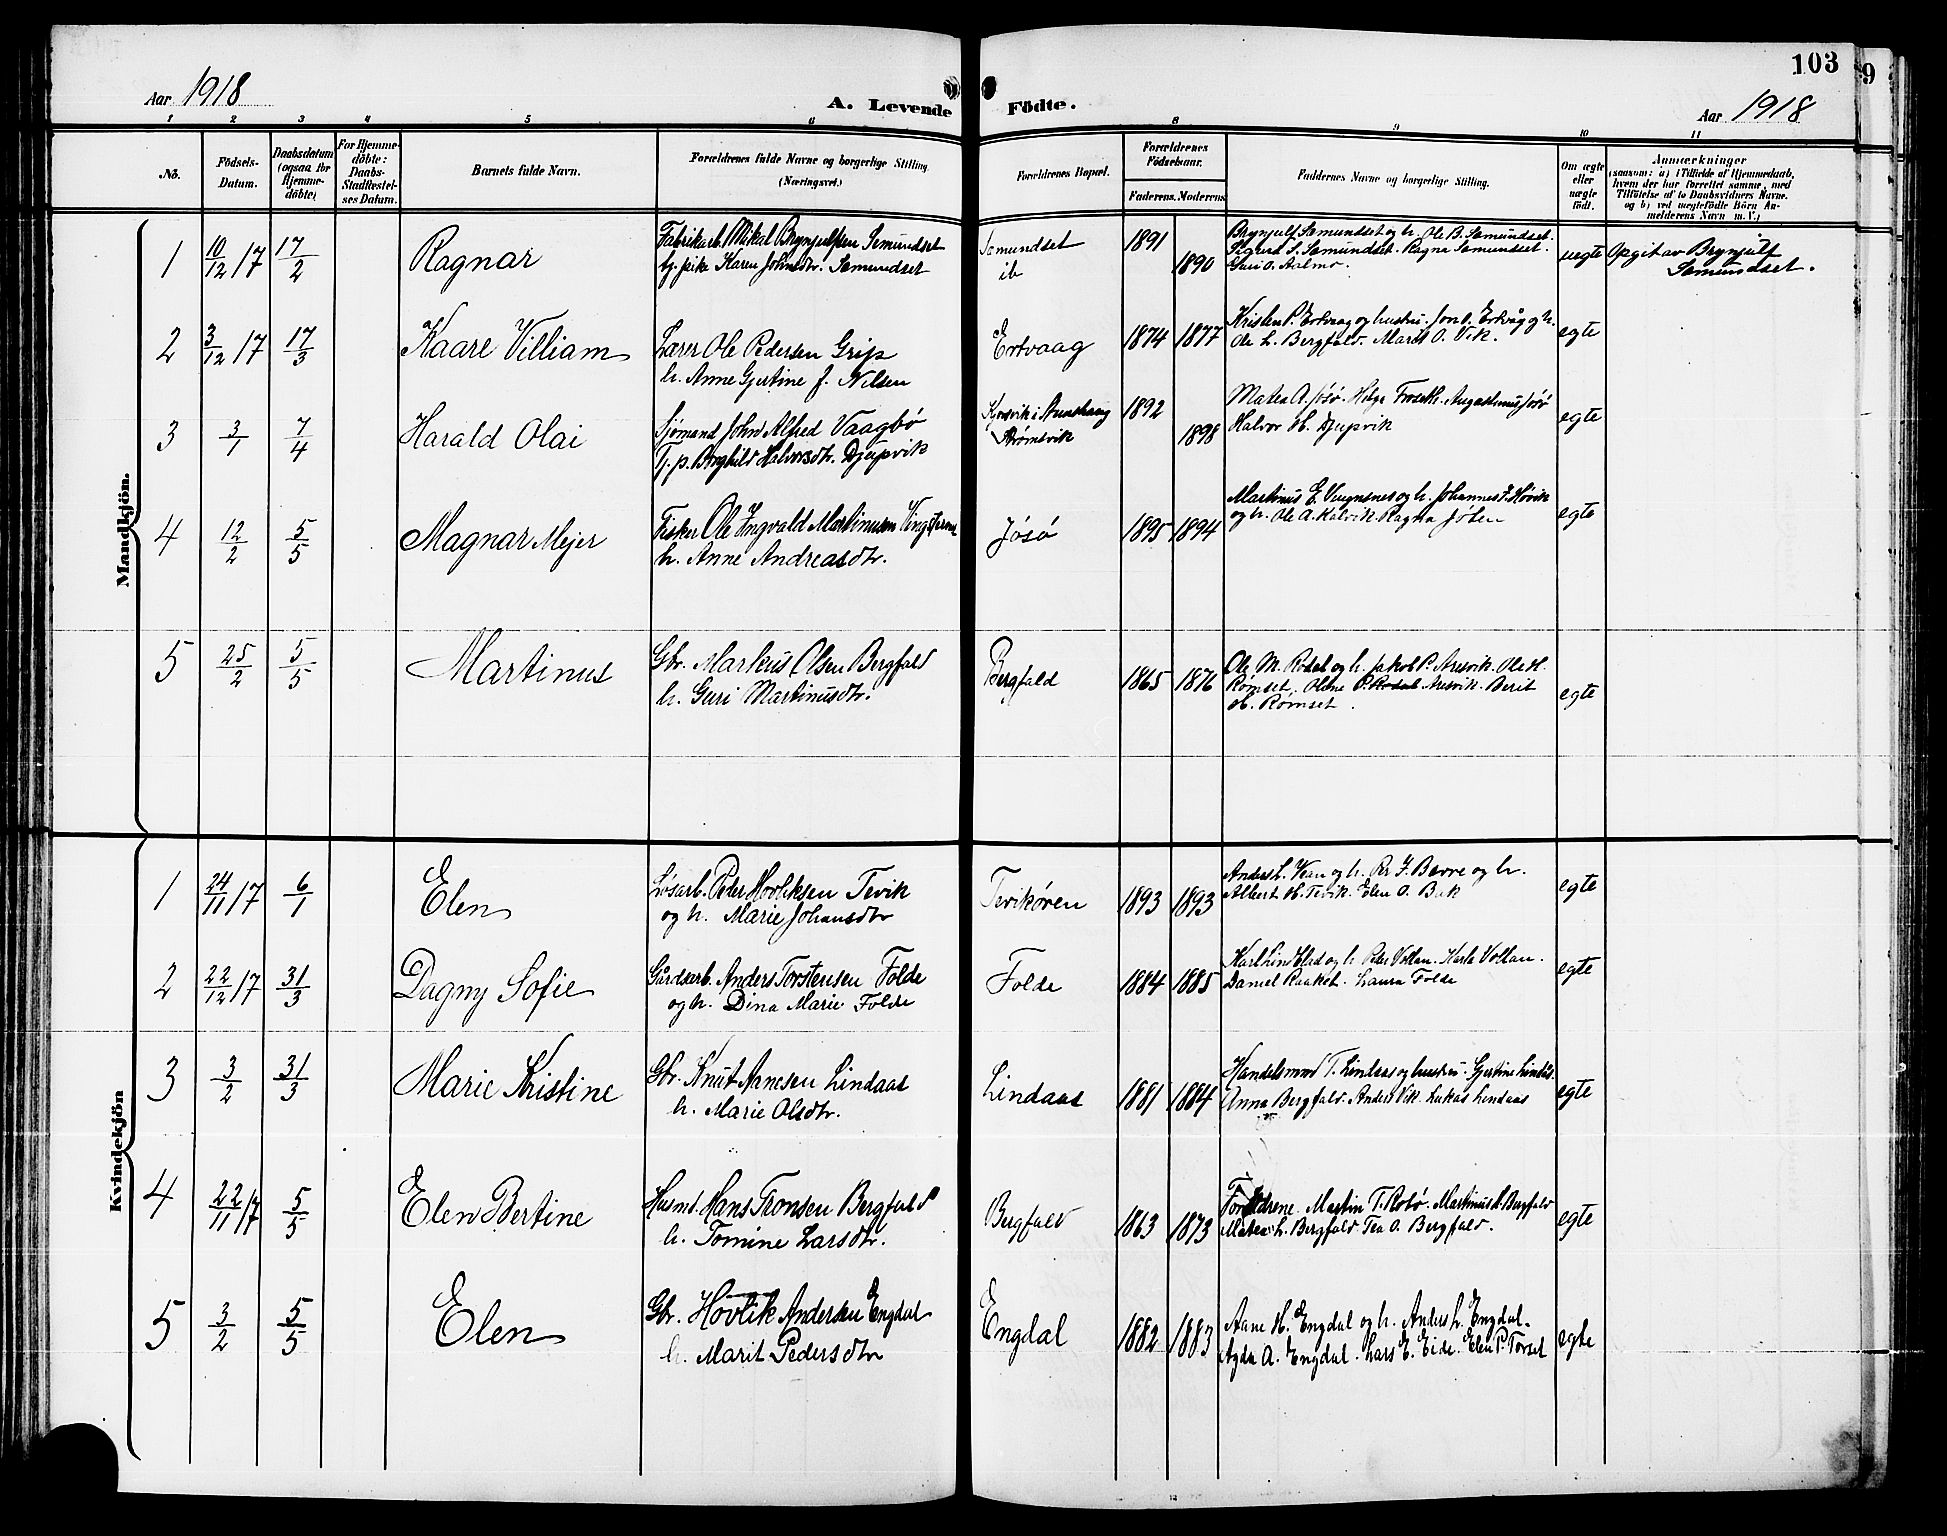 103
9
Aar 1918
A. Levende Födte.
Aar 1918
1 2 3 4 5 6 8 9 10 11
No.
Födsels-
Datum.
Daabsdatum
(ogsaa for
Hjemme-
döbte)
For Hjemme-
döbte:
Daabs-
Stadfæstel-
ses Datum.
Barnets fulde Navn.
Forældrenes fulde Navne og borgerlige Stilling
(Næringsvei.)
Forældrenes Bopæl.
Forældrenes
Födselsaar.
Faderens. Moderens.
Faddernes Navne og borgerlige Stilling.
Om ægte
eller
uægte
födt.
Anmærkninger
(saasom: a) i Tilfælde af Hjemmedaab,
hvem der har forrettet samme, med
Tilföielse af to Daabsvidners Navne.
og b) ved uægtefödte Börn An-
melderens Navn m. V.)
Mandkjön.
1 10/12 17 17/2 Ragnar
Fabrikarb. Mikal Brynjulfsen Semundset
tj. pike Karen Johnsdtr. Semundset
Semundset
ib
1891 1890
Brynjulf Semundset og h. Ole B. Semundset.
Sigurd S. Semundset. Ragna Semundset.
Guri O. Aalmo.
uegte
Opgit av Brynjulf
Semundset.
2 3/12 17 17/3 Kaare Villiam
Lærer Ole Pedersen Grip
h. Anne Gjertine f. Nilsen
Ertvaag
1874 1877
Kristen P. Ertvaag og hustru. Jon O. Ertvåg og h.
Ole L. Bergfald. Marit O. Vik.
egte
3 3/1 7/4 Harald Olai
Sjømand John Alfred Vaagbø
Tj. p. Borghild Halvorsdtr. Djupvik
Strømsvik
1892 1898
Matea A. Jøsø. Helge Augustinus Jøsø
Halvor H. Djupvik
egte
4 12/2 5/5 Magnar Mejer
Fisker Ole Ingvald Martinusen
h. Anne Andreasdtr.
Jøsø
1895 1894
Martinus E. og h. Johannes J. Høvik
og h. Ole A. Kalvik. Ragna Jøsen
egte
5 25/2 5/5 Martinus
Gbr. Markus Olsen Bergfald
h. Guri Martinusdtr.
Bergfald
1865 1876
Ole M. Rodal og h. Jakob P. Aresvik. Ole H.
Rømset. Oline P. Rodal Aresvik. Berit
H. Rømset.
egte
Kvindekjön
1 24/11 17 6/1 Elen
Løsarb. Peter Hovliksen Tevik
og h. Marie Johansdtr
Tevikøren
1893 1893
Anders L. Vean og h. Per J. Bævre og h.
Albert H. Tevik. Elen O. Bak
egte
2 22/12 17 31/3 Dagny Sofie
Gårdsarb. Anders Torstensen Folde
og h. Dina Marie Folde
Folde
1884 1885
Karl Lindblad og h. Peter Vollan. Karle Vollan.
Daniel Raaket. Laura Folde
egte
3 3/2 31/3 Marie Kristine
Gbr. Knut Aanesen Lindaas
h. Marie Olsdtr.
Lindaas
1881 1884
Handelsmand T. Lindaas og hustru. Gjertine Lindås.
Anna Bergfald. Anders Vik. Lukas Lindaas
egte
4 22/11 17 5/5 Elen Bertine
Husmd. Hans Tronsen Bergfald
h. Tomine Larsdtr.
Bergfald
1863 1873
Forældrene. Martin T. Rotø. Martinus L. Bergfald
Matea L. Bergfald. Tea O. Bergfald.
egte
5 3/2 5/5 Elen
Gbr. Hovlik Andersen Engdal
h. Marit Pedersdtr
Engdal
1882 1883
Aane H. Engdal og h. Anders L. Engdal.
Agda A. Engdal. Lars E. Eide. Elen P. Torset
egte